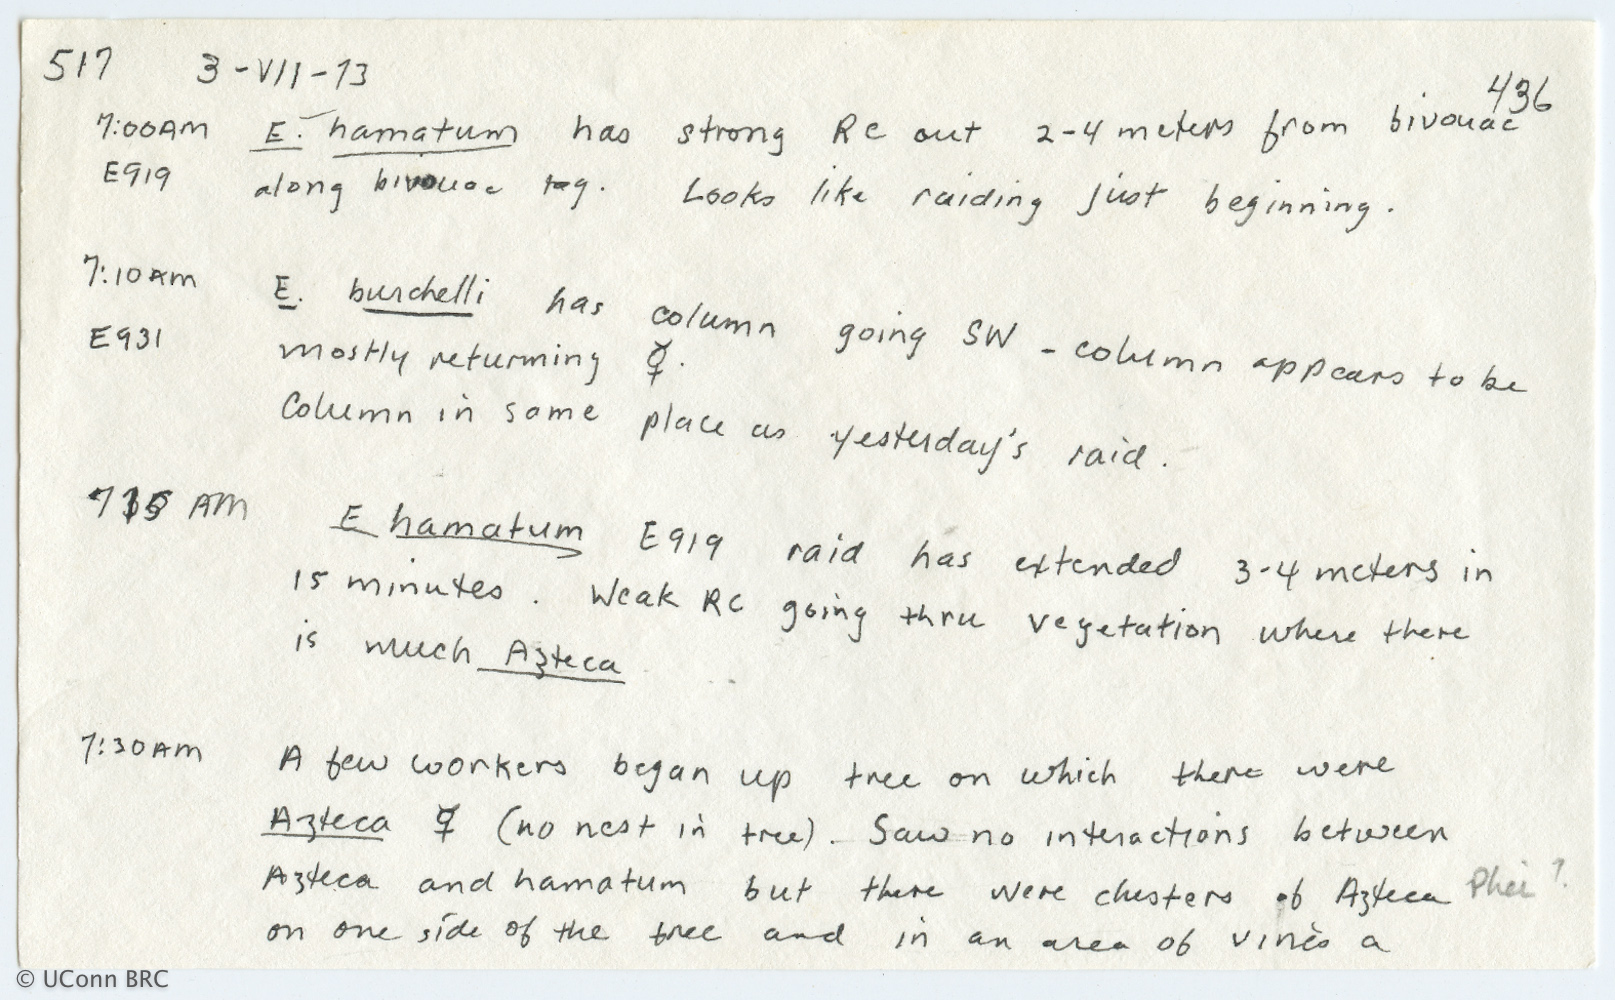 517 3-VII-73 436
7:00AM E. hamatum has strong RC out 2-4 meters from bivouac
E919 along bivouac tag. Looks like raiding just beginning.
7:10AM E. burchelli has column going SW - column appears to be
E931 mostly returning ☿.
Column in same place as yesterday's raid.
715 AM E hamatum E919 raid has extended 3-4 meters in
15 minutes. Weak RC going thru vegetation where there
is much Azteca
7:30AM A few workers began up tree on which there were
Azteca ☿ (no nest in tree). Saw no interactions between
Azteca and hamatum but there were clusters of Azteca
on one side of the tree and in an area of vines a
© UConn BRC